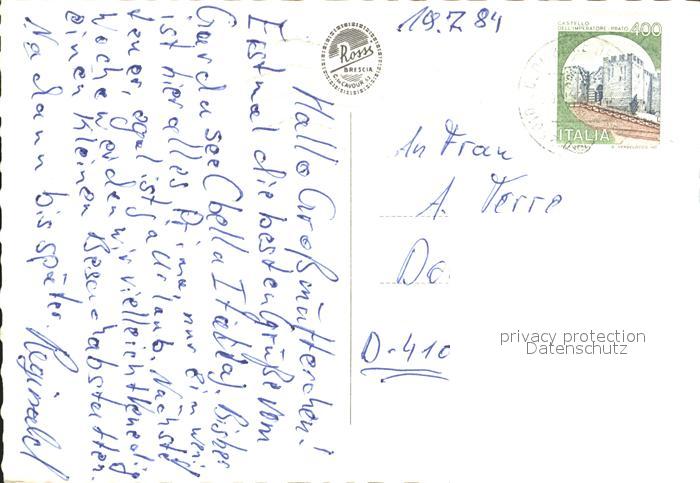 Hallo Großmütterchen!
Erst mal die besten Grüße vom
Gardasee (bella Italia). Bisher
ist hier alles prima, nur ein wenig
teuer, egal ist ja Urlaub. Nächste
Woche werden wir vielleicht Venedig
einen kleinen Besuch abstatten.
Na dann bis später.
Rossi
BRESCIA
C. CAVOUR
19.7.84
CASTELLO
DELL'IMPERATORE · PRATO 400
ITALIA
An Frau
A. Terre
Da.
D-410
privacy protection
Datenschutz